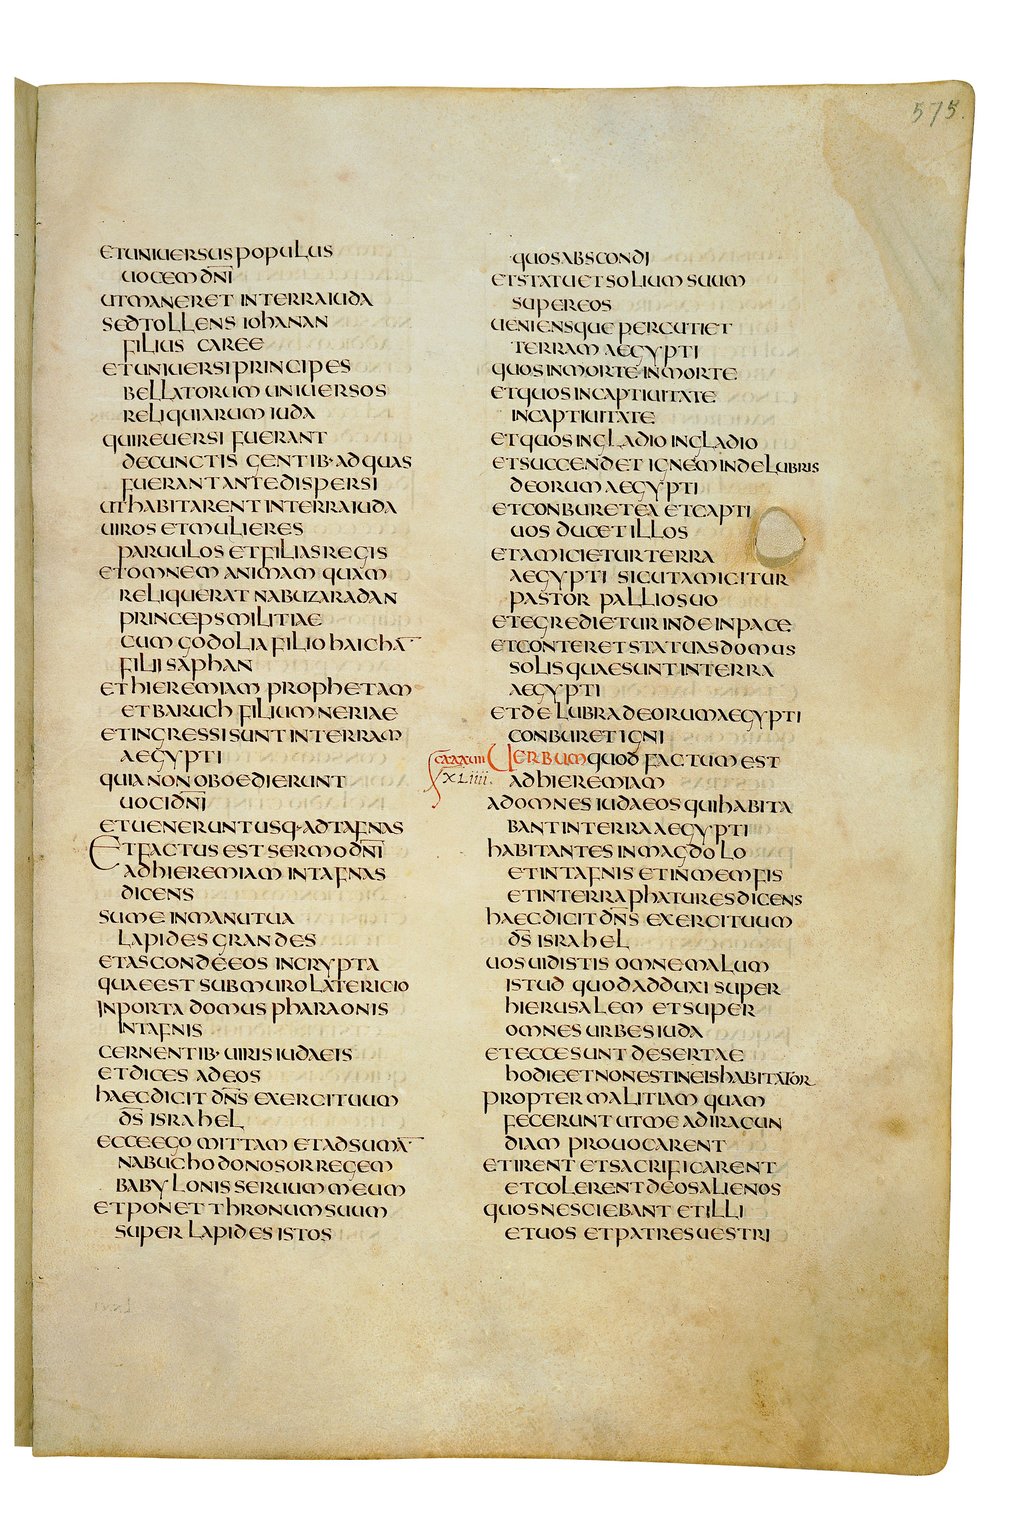 575.
ETUNIUERSUS POPULUS
UOCEM DNI
UTMANERET INTERRAIUDA
SEDTOLLENS IOHANAN
FILIUS CAREE
ETUNIUERSI PRINCIPES
BELLATORUM UNIUERSOS
RELIQUIARUM IUDA
QUIREUERSI FUERANT
DECUNCTIS GENTIB· ADQUAS
FUERANTANTEDISPERSI
UTHABITARENT INTERRAIUDA
UIROS ETMULIERES
PARUULOS ETFILIASREGIS
ETOMNEM ANIMAM QUAM
RELIQUERAT NABUZARADAN
PRINCEPSMILITIAE
CUM GODOLIA FILIO HAICHĀ
FILII SAPHAN
ETHIEREMIAM PROPHETAM
ETBARUCH FILIUM NERIAE
ETINGRESSI SUNT INTERRAM
AEGYPTI
QUIANONOBOEDIERUNT
UOCIDNI
ETUENERUNTUSQ·ADTAFNAS
ETFACTUS EST SERMO DNI
ADHIEREMIAM INTAFNAS
DICENS
SUME INMANUTUA
LAPIDES GRANDES
ETASCONDEEOS INCRYPTA
QUAEEST SUBMURO LATERICIO
INPORTA DOMUS PHARAONIS
INTAFNIS
CERNENTIB· UIRIS IUDAEIS
ETDICES ADEOS
HAECDICIT DNS EXERCITUUM
DS ISRAHEL
ECCEEGO MITTAM ETADSUMĀ
NABUCHODONOSOR REGEM
BABYLONIS SERUUM MEUM
ETPONET THRONUM SUUM
SUPER LAPIDES ISTOS
QUOSABSCONDI
ETSTATUET SOLIUM SUUM
SUPEREOS
UENIENSQUE PERCUTIET
TERRAM AEGYPTI
QUOSINMORTE INMORTE
ETQUOS INCAPTIUITATE
INCAPTIUITATE
ETQUOS INGLADIO INGLADIO
ETSUCCENDET IGNEM INDELUBRIS
DEORUM AEGYPTI
ETCONBURETEA ETCAPTI
UOS DUCET ILLOS
ETAMICIETUR TERRA
AEGYPTI SICUTAMICITUR
PASTOR PALLIOSUO
ETEGREDIETUR INDE INPACE
ETCONTERET STATUASDOMUS
SOLIS QUAESUNT INTERRA
AEGYPTI
ETDELUBRADEORUMAEGYPTI
CONBURET IGNI
UERBUM QUOD FACTUM EST
XLIIII.
ADHIEREMIAM
ADOMNES IUDAEOS QUIHABITA
BANTINTERRA AEGYPTI
HABITANTES INMAGDOLO
ETINTAFNIS ETINMEMFIS
ETINTERRAPHATURES DICENS
HAECDICIT DNS EXERCITUUM
DS ISRAHEL
UOSUIDISTIS OMNEMALUM
ISTUD QUODADDUXI SUPER
HIERUSALEM ETSUPER
OMNES URBES IUDA
ETECCESUNT DESERTAE
HODIEETNONESTINEISHABITATOR
PROPTER MALITIAM QUAM
FECERUNT UTME ADIRACUN
DIAM PROUOCARENT
ETIRENT ETSACRIFICARENT
ETCOLERENTDEOSALIENOS
QUOSNESCIEBANT ETILLI
ETUOS ETPATRESUESTRI